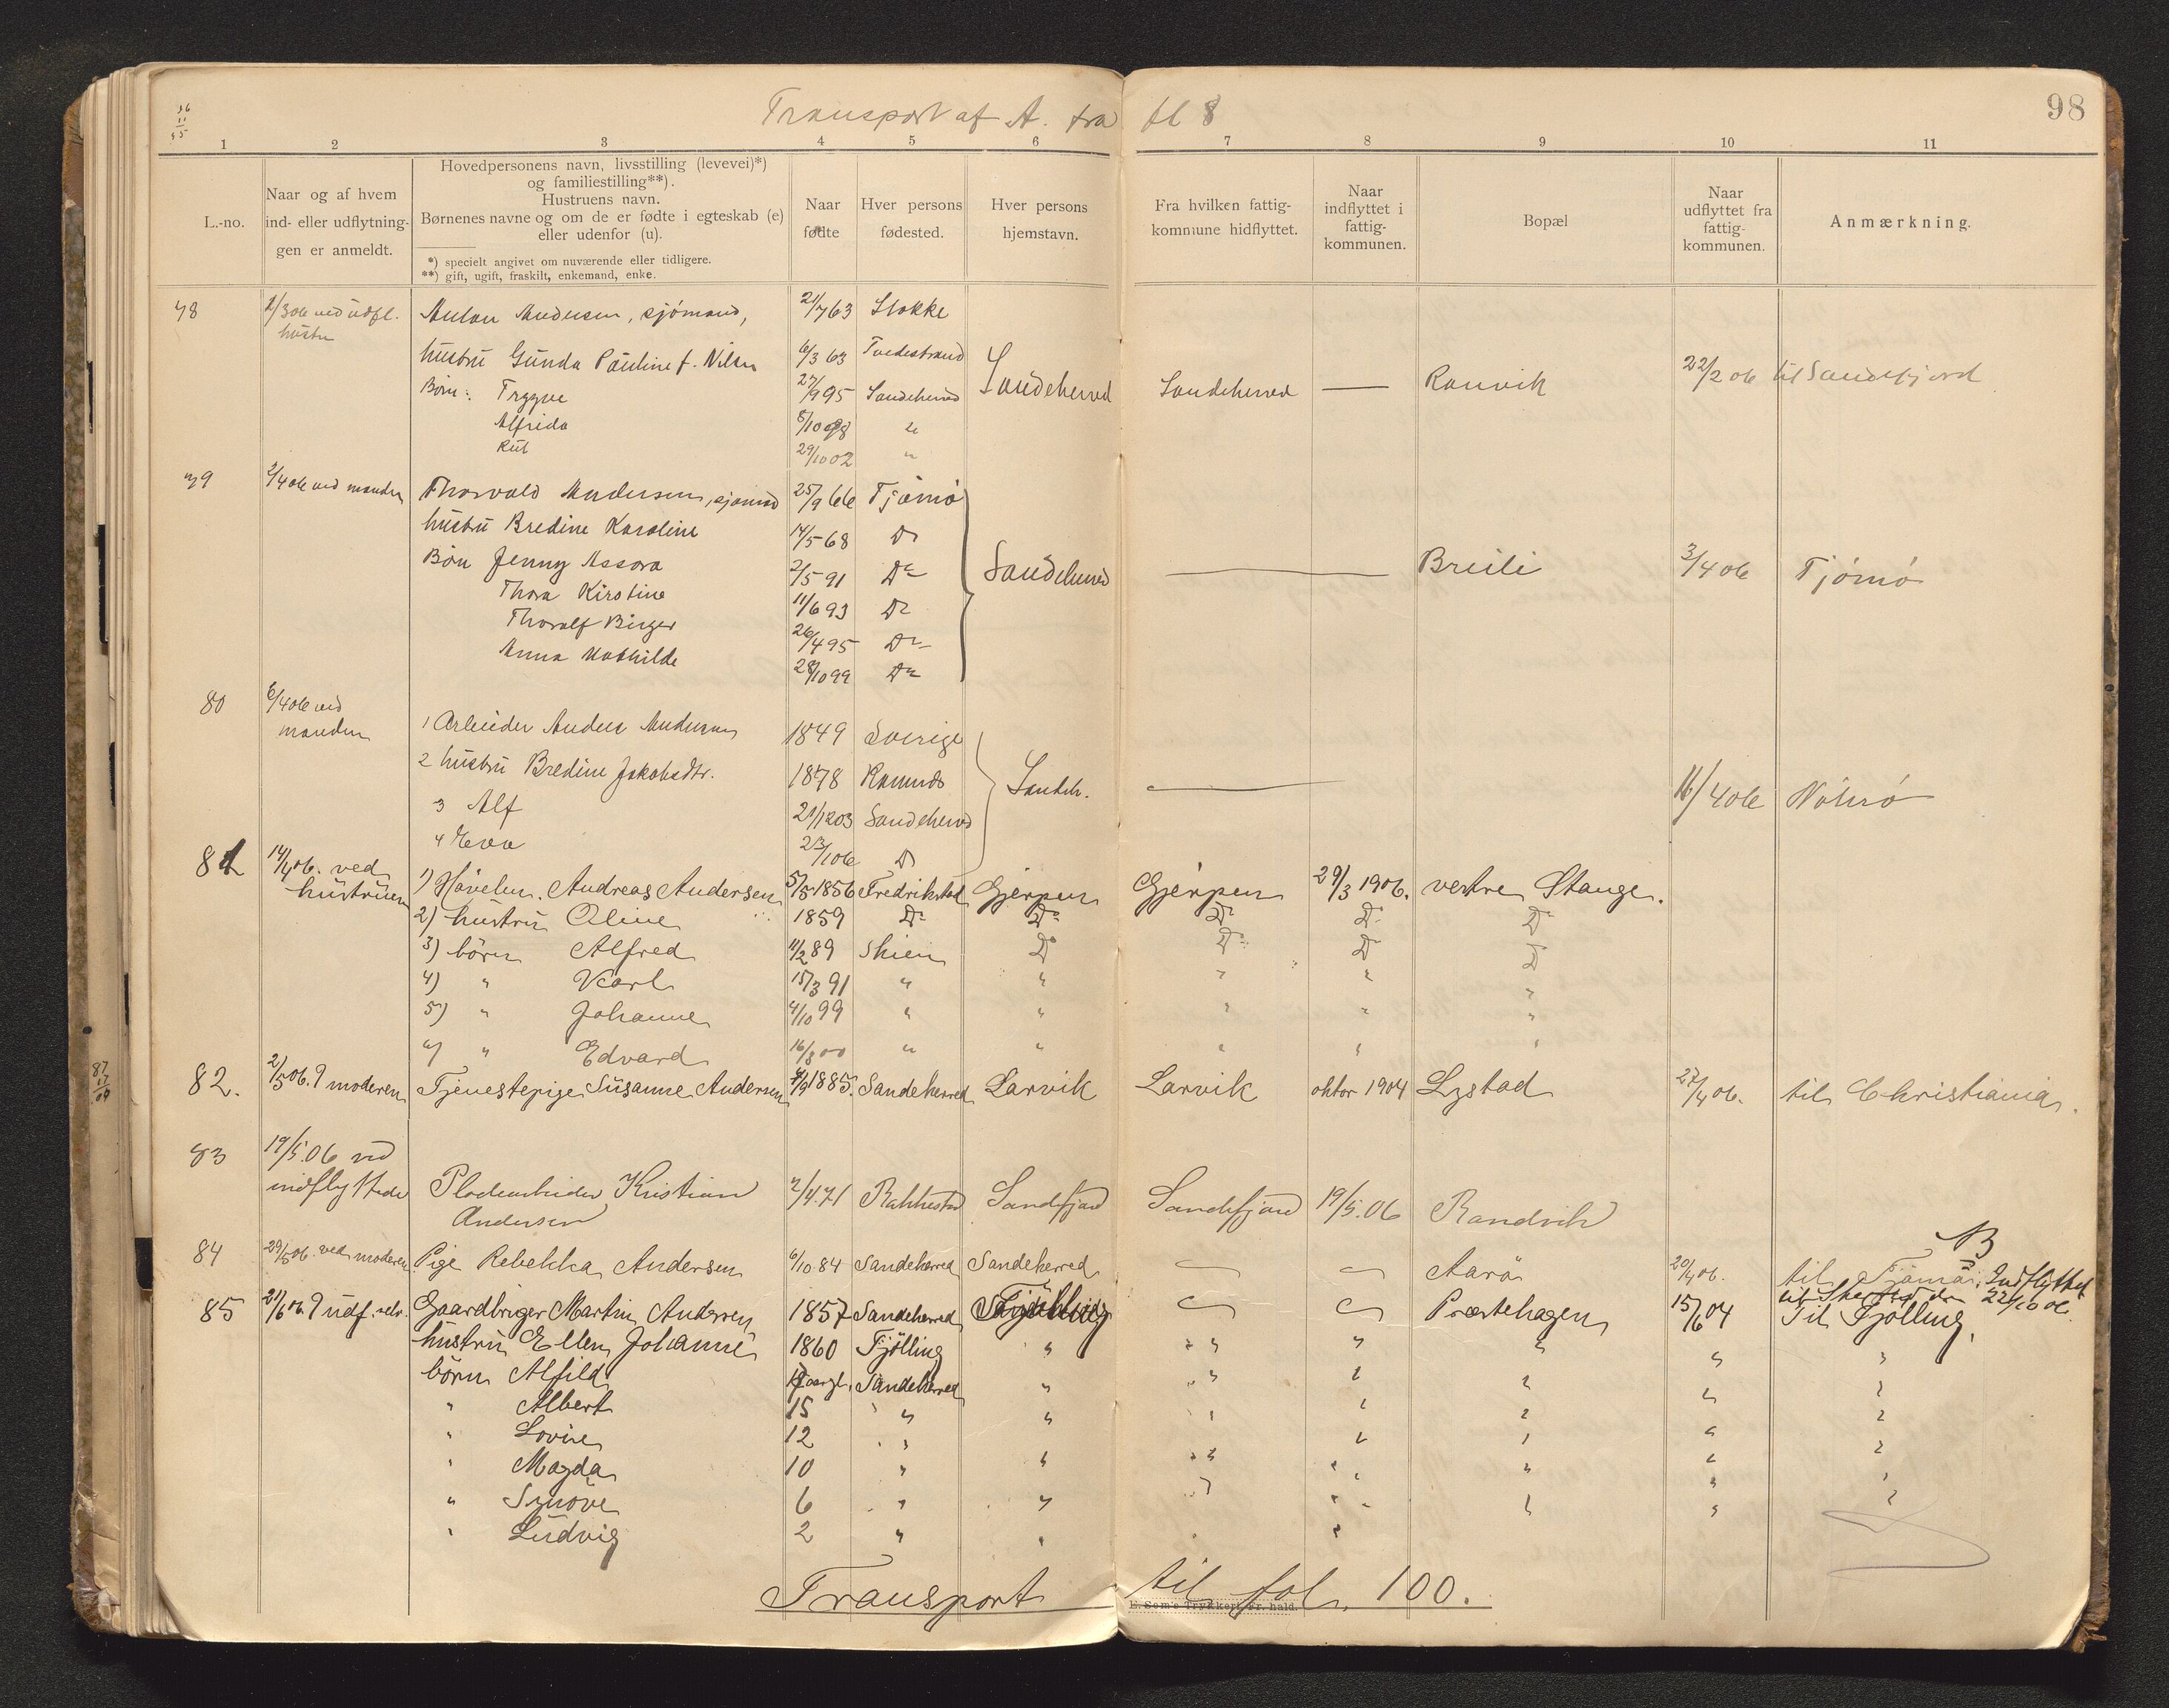 Transport af A. fra fl 8
98
1 2 3 4 5 6 7 8 9 10 11
L.-no.
Naar og af hvem
ind- eller udflytnin-
gen er anmeldt.
Hovedpersonens navn, livsstilling (levevei)*)
og familiestilling**).
Hustruens navn.
Børnenes navne og om de er fødte i egteskab (e)
eller udenfor (u).
*) specielt angivet om nuværende eller tidligere.
**) gift, ugift, fraskilt, enkemand, enke.
Naar
fødte
Hver persons
fødested.
Hver persons
hjemstavn.
Fra hvilken fattig-
kommune hidflyttet.
Naar
indflyttet i
fattig-
kommunen.
Bopæl
Naar
udflyttet fra
fattig-
kommunen.
Anmærkning.
78 2/3 06 ved udfl. Anton Andersen, sjömand, 21/7 63 Stokke
hustru
hustru Gunda Pauline f. Nilsen 6/3 63 Tvedestrand
Börn: Trygve 27/9 95 Sandeherred Sandeherred Sandeherred — Ranvik 22/2 06 til Sandefjord
Alfrida 8/10 98 "
Rut 29/10 02 "
79 3/4 06 ved manden Thorvald Andersen, sjömand 25/9 66 Tjømø
hustru Bredine Karoline 14/5 68 Do
Börn Jenny Assora 2/5 91 Do Sandeherred — Breili 3/4 06 Tjömö
Thora Kirstine 11/6 93 Do
Thoralf Birger 26/4 95 Do
Anna Mathilde 28/10 99 Do
80 6/4 06 ved
manden 1 Arbeider Anders Andersen 1849 Sverige
2 hustru Bredine Jakobsdtr. 1878 Ramnes Sandeh. — 11/4 06 Nöterö
3 Alf 21/12 03 Sandeherred
4 Eva 23/1 06 Do
81 14/4 06. ved
hustruen 1) Hövelm. Andreas Andersen 5/5 1856 Fredrikstad Gjerpen Gjerpen 29/3 1906. vestre Stange.
2) hustru Oline 1859 Do Do Do Do Do
3) börn Alfred 11/2 89 Skien Do Do Do Do
4) " Karl 15/3 91 " " " " "
5) " Johanne 4/10 99 " " " " "
6) " Edvard 16/3 00 " " " " "
82. 2/5 06. ? moderen Tjenestepige Susanne Andersen 1885. Sandeherred Larvik Larvik oktbr 1904 Lystad 27/4 06. til Christiania.
83 19/5.06 ved
indflyttede Kristian 2/4.71 Rakkestad Sandefjord Sandefjord 19/5.06 Randvik
Andersen
84 29/5 06. ved moderen. Pige Rebekka Andersen 6/10 84 Sandeherred Sandeherred — — Aarö 20/4 06. til Tjömö. Indflyttet
B
22/10 06.
85 21/6 06. ? udf. selv. Gaardbruger Martin Andersen 1857 Sandeherred — — Præstehagen 15/6 04 Til Tjölling.
hustru Ellen Johanne 1860 Tjölling " " " " " "
börn Alfild aargl. Sandeherred " " " " " "
" Albert 15 " " " " " " "
" Lovise 12 " " " " " "
" Magda 10 " " " " " " "
" Synöve 6 " " " " " " "
" Ludvig 2 " " " "
Transport til fol. 100.